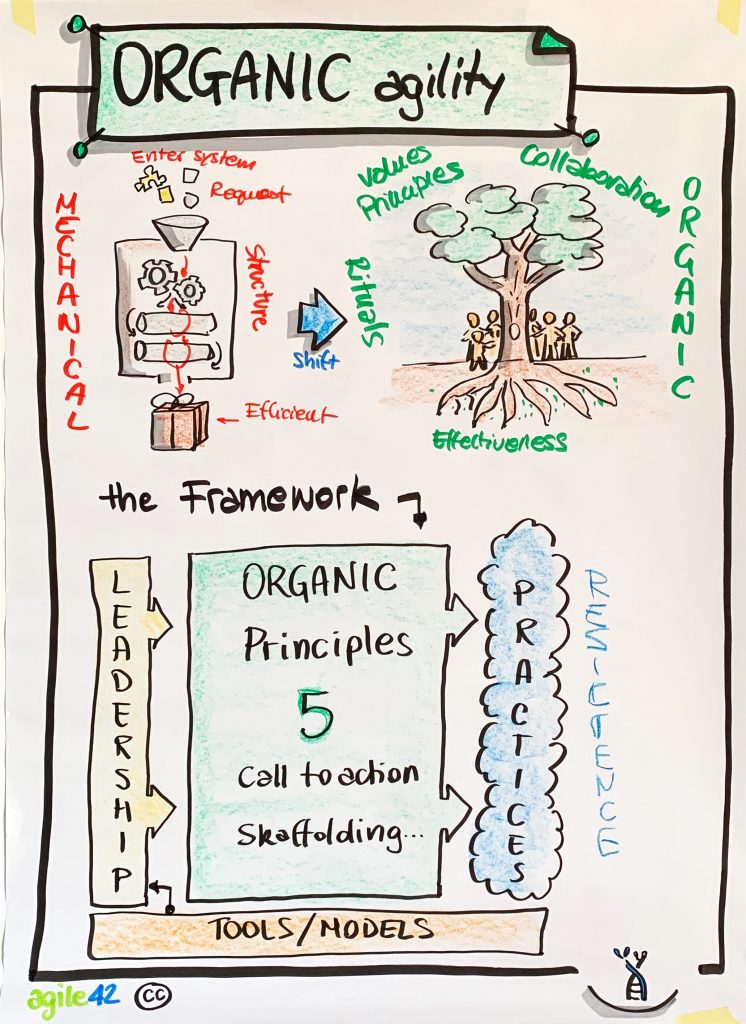 ORGANIC agility
MECHANICAL
Enter system
Request
Structure
Efficient
Shift
Values
Principles
Collaboration
Rituals
ORGANIC
Effectiveness
the Framework
LEADERSHIP
ORGANIC
Principles
5
Call to action
Skaffolding...
PRACTICES
TOOLS/MODELS
agile42 cc